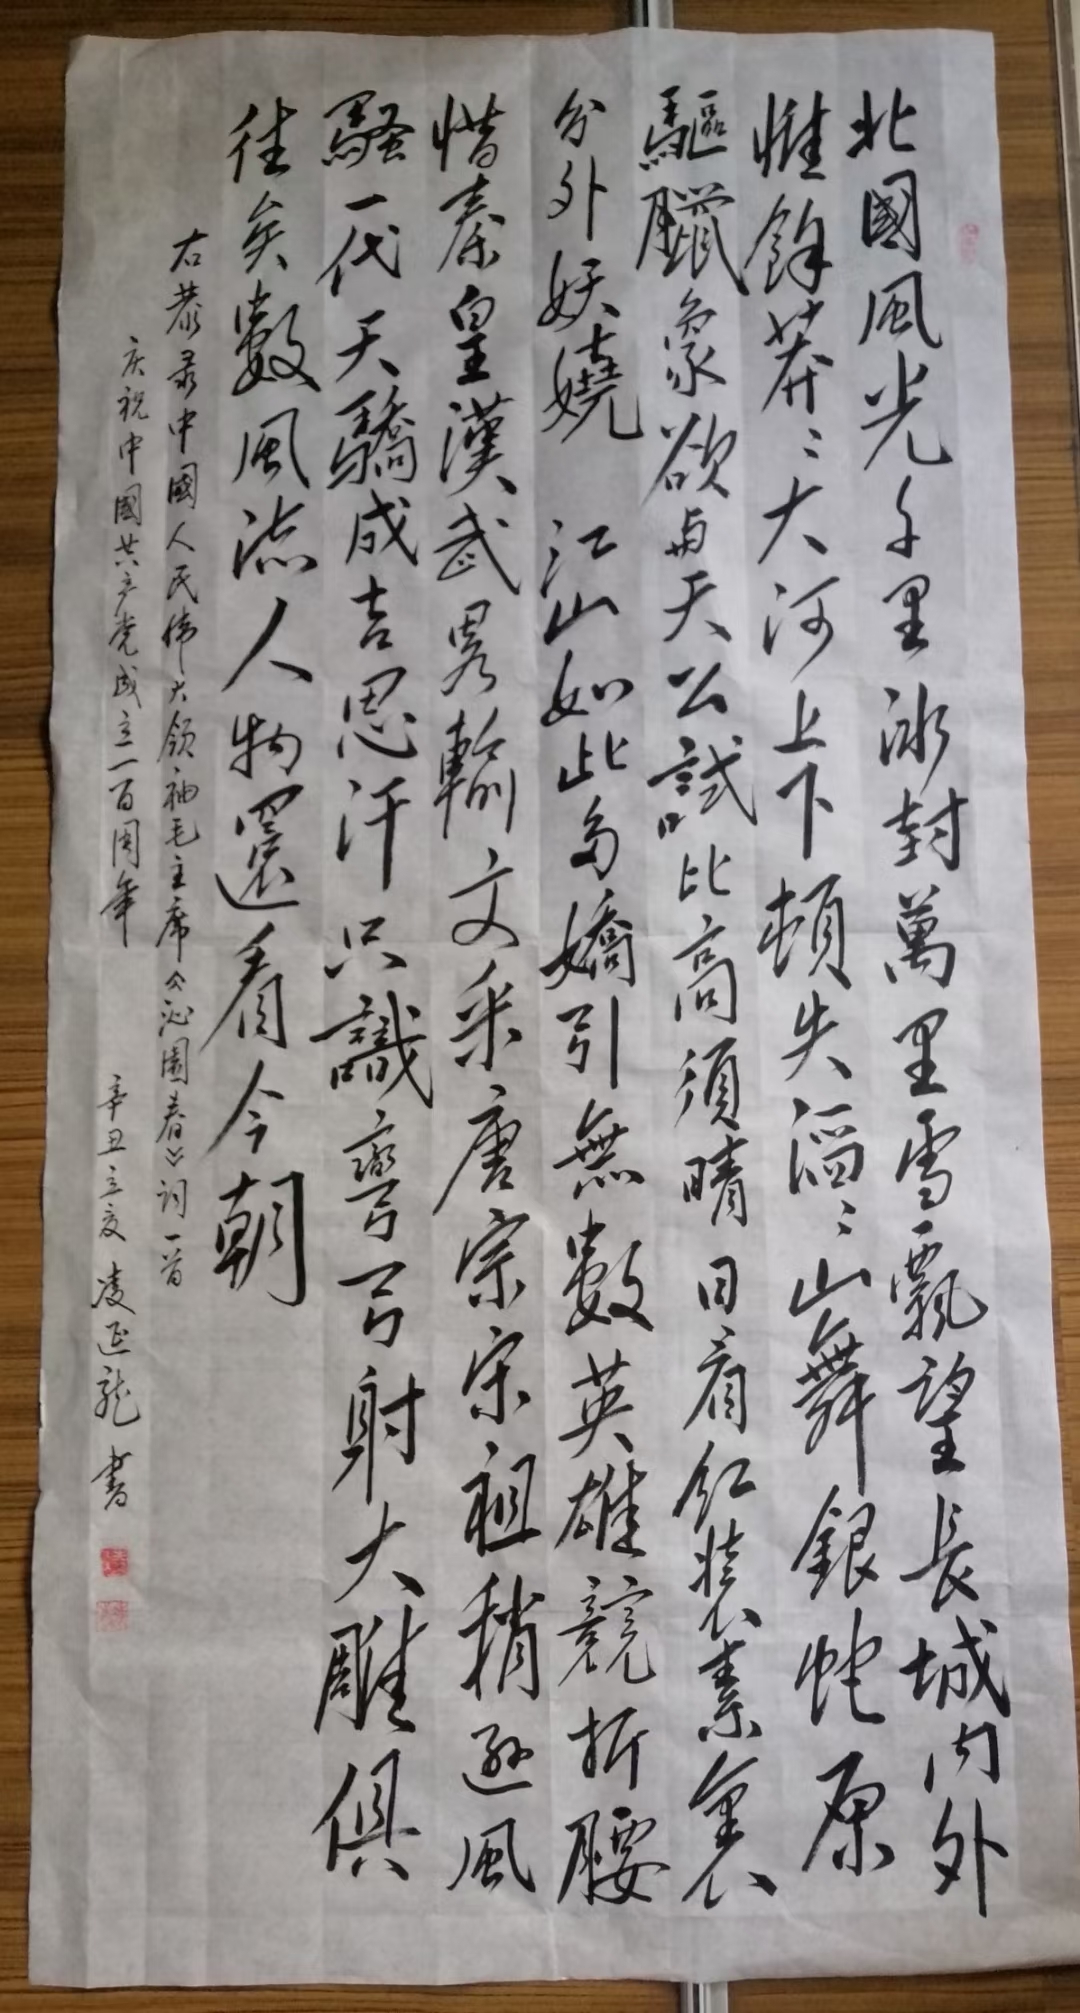 北國風光千里冰封萬里雪飄望長城内外
惟餘莽〻大河上下頓失滔〻山舞銀蛇原
驅臘象欲与天公試比高須晴日看红装素裹
分外妖嬈 江山如此多嬌引無數英雄競折腰
惜秦皇漢武畧輸文采唐宗宋祖稍遜風
騷一代天驕成吉思汗只識彎弓射大雕俱
往矣數風流人物還看今朝
右恭录中國人民偉大领袖毛主席《沁園春》词一首
庆祝中國共产党成立一百周年 辛丑立夏 凌延龙書